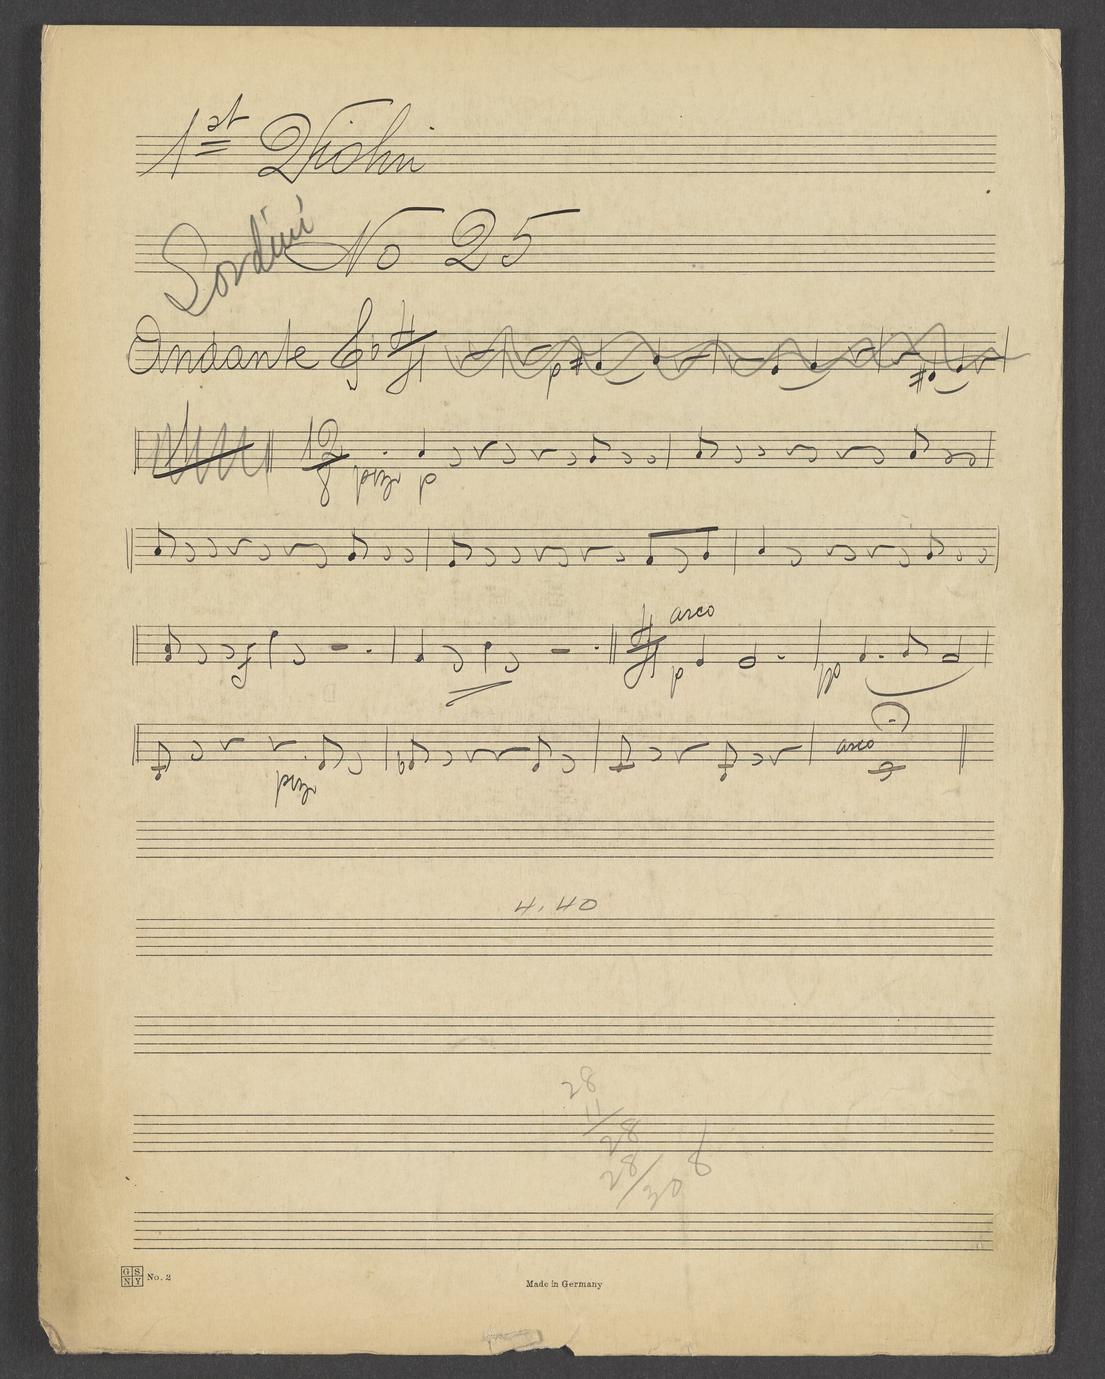 1st Violin
Sordini No 25
Andante
p
12
8 pizz p
f arco
p pp
pizz arco
4.40
28
11
28
28
30 8
GS
NY No. 2
Made in Germany